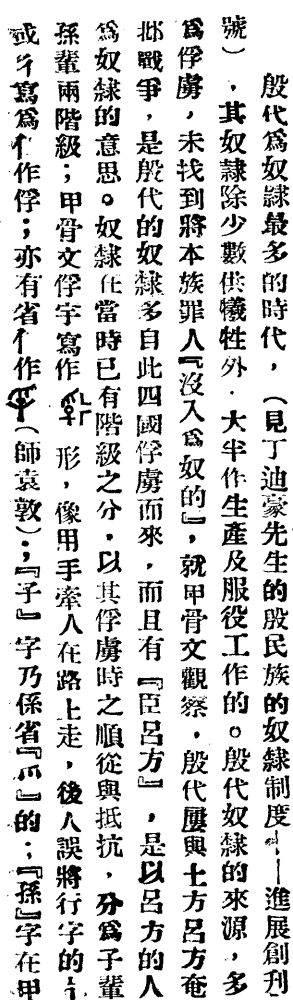 殷代爲奴隸最多的時代，（見丁迪豪先生的殷民族的奴隸制度——進展創刊
號），其奴隸除少數供犧牲外．大半作生產及服役工作的。殷代奴隸的來源，多
爲俘虜，未找到將本族罪人『沒入爲奴的』，就甲骨文觀察，殷代屢與土方呂方奄
邶戰爭，是殷代的奴隸多自此四國俘虜而來，而且有『臣呂方』，是以呂方的人
爲奴隸的意思。奴隸在當時已有階級之分．以其俘虜時之順從與抵抗，分爲子輩
孫輩兩階級；甲骨文俘字寫作 形，像用手牽人在路上走，後人誤將行字的彳
或亍寫爲亻作俘；亦有省亻作（師袁敦）；『子』字乃係省『爪』的；『孫』字在甲